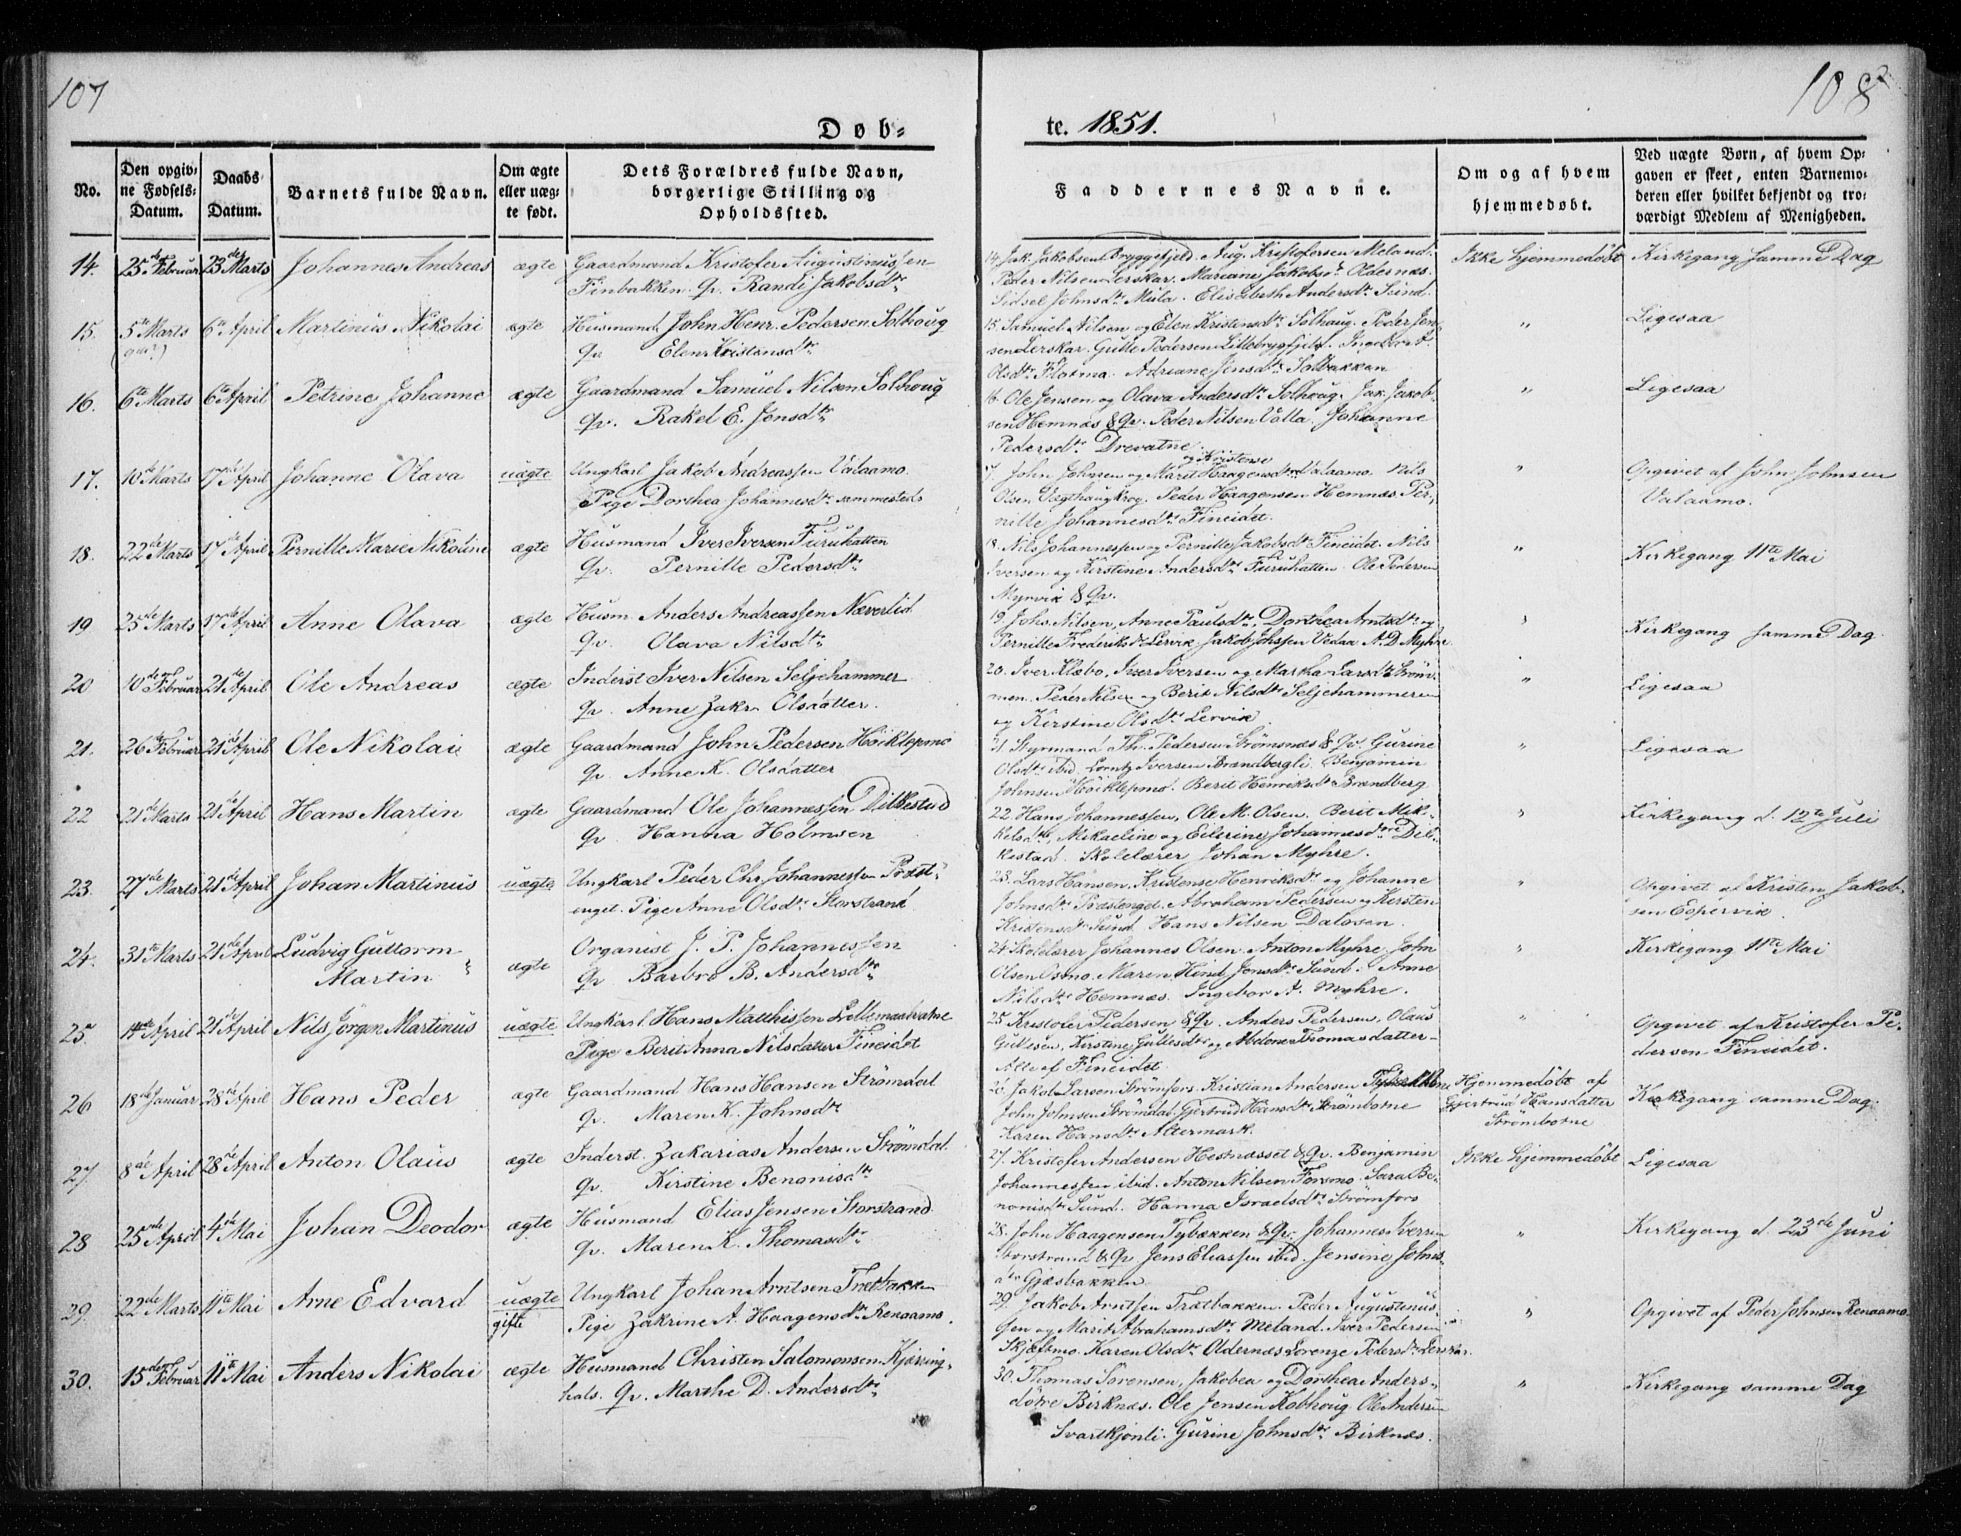 107
108
Døb-
te. 1851.
No.
Den opgiv-
ne Fødsels-
Datum.
Daabs-
Datum.
Barnets fulde Navn.
Om ægte
eller uæg-
te født.
Dets Forældres fulde Navn,
borgerlige Stilling og
Opholdssted.
Faddernes Navne.
Om og af hvem
hjemmedøbt.
Ved uægte Børn, af hvem Op-
gaven er skeet, enten Barnemo-
deren eller hvilket bekjendt og tro-
værdigt Medlem af Menigheden.
14. 25de Februar 23de Marts Johannes Andreas ægte Gaardmand Kristofer Augustinussen
Finbakken. Qv. Randi Jakobsdtr
14. Jak. Jakobsen Bryggefjeld. Aug. Kristofersen Meland.
Peder Nilsen Lerskar. Mariane Jakobsdr Oldernæs.
Sidsel Johnsdtr Mula. Elisabeth Andersdtr Sund.
Ikke hjemmedøbt Kirkegang samme Dag
15. 5te Marts 6te April Martinus Nikolai ægte Husmand John Henr. Pedersen Solhoug
Qv. Elen Kristensdtr
15. Samuel Nilsen og Elen Kristensdtr Solhaug. Peder Jen-
sen Lerskar. Gulle Pedersen Littebrygfjeld.
Olsdtr Flatma. Adriane Jensdtr Solbakken
" Ligesaa
16. 6te Marts 6te April Petrine Johanne ægte Gaardmand Samuel Nilsen Solhoug
Qv. Rakel E. Jensdtr
16. Ole Jensen og Olava Andersdtr Solhoug. Jak. Jakob-
sen Hemnæs & Qv. Peder Nilsen Valla. Johanne
Pedersdtr Drevatne.
" Ligesaa
17. 10de Marts 17de April Johanne Olava uægte Ungkarl Jakob Andreassen Valaamo.
Pige Dorthea Johannesdtr sammesteds
og Kristense
17. John Johnsen og Marit Haagensdtr Valaamo. Nils
Olsen Vægthaugkrog. Peder Haagensen Hemnæs. Per-
nille Johannesdtr Fineidet.
" Opgivet af John Johnsen
Valaamo.
18. 22de Marts 17de April Pernille Marie Nikoline ægte Husmand Iver Iversen Furuhatten
Qv. Pernille Pedersdtr
18. Nils Johannessen og Pernille Jakobsdtr Fineidet. Nils
Iversen og Kirstine Andersdtr Furuhatten. Ole Pedersen
Myrvik & Qv.
" Kirkegang 11te Mai
19 25de Marts 17de April Anne Olava ægte Husm. Anders Andreassen Næverlid
Qv. Olava Nilsdtr
19. Johs Nilsen, Anne Paulsdtr, Dorthea Arntsdtr og
Pernille Frederiksdtr Lervik. Jakob Johssen Vedaa. A. D. Myhre
" Kirkegang samme Dag.
20 10de Februar 21de April Ole Andreas ægte Inderst Iver Nilsen Seljehammer
Qv. Anne Zakr. Olsdatter.
20. Iver Klæbo, Iver Iversen og Martha Larsdtr Strøm-
men. Peder Nilsen og Berit Nilsdtr Seljehammeren
og Kirstine Olsdtr Lervik.
" Ligesaa
21. 26de Februar 21de April Ole Nikolai ægte Gaardmand John Pedersen Høiklepmo
Qv. Anne K. Olsdatter
21 Styrmand Th. Pedersen Strømsnæs & Qv. Gurine
Olsdtr ibid. Lorntz Iversen Brandbergli. Benjamin
Johnsen Høiklepmo. Berit Henriksdtr Brandberg
" Ligesaa
22 21de Marts 21de April Hans Martin ægte Gaardmand Ole Johannessen Dilkestad
Qv. Hanna Holmsen
22 Hans Johannessen, Ole M. Olsen. Berit Mik-
kelsdtr, Mikaeline og Eilerine Johannesdøtre Dil-
kestad. Skolelærer Johan Myhre.
" Kirkegang d. 12te Juli
23. 27de Marts 21de April Johan Martinus uægte Ungkarl Peder Chr. Johannessen Præst-
enget. Pige Anne Olsdtr Storstrand
23. Lars Hansen, Kristense Henriksdtr og Johanne
Johnsdtr Præstenget. Abraham Pedersen og Kersten
Kristensdtr Sund. Hans Nilsen Dalosen.
" Opgivet af Kristen Jakob-
sen Espervik.
24. 31te Marts 21de April Ludvig Guttorm
Martin " ægte Organist J. P. Johannessen
Qv. Barbro B. Andersdtr
24 Skolelærer Johannes Olsen. Anton Myhre, John
Olsen Osmo. Maren Kind Jensdtr Sund. Anne
Nilsdtr Hemnæs. Ingebor A. Myhre.
" Kirkegang 11te Mai
25. 14de April 21de April Nils Jørgen Martinus uægte Ungkarl Hans Matthissen Lillemaalvatne
Pige Berit Anna Nilsdatter Fineidet
25 Kristofer Pedersen & Qv. Anders Pedersen, Olaus
Gullesen, Kirstine Gullesdtr og Abelone Thomasdatter-
Alle af Fineidet
" Opgivet af Kristofer Pe-
dersen Fineidet.
26 18de Januar 28de April Hans Peder ægte Gaardmand Hans Hansen Strømdal
Qv. Maren K. Johnsdtr
26. Jakob Larsen Strømfors. Kristian Andersen
John Johnsen Strømdal. Gjertrud Hansdtr Strømbotne
Karen Hansdtr Altermark.
Hjemmedøbt af
Gjertrud Hansdatter
Strømbotne
Kirkegang samme Dag.
27. 8de April 28de April Anton Olaus ægte Inderst. Zakarias Andersen Strømdal
Qv. Kirstine Benonisdtr
27. Kristofer Andersen Hestnæsset & Qv. Benjamin
Johannessen ibid. Anton Nilsen Forsmo. Sara Be-
nonisdtr Sund. Hanna Israelsdtr Strømfors
Ikke hjemmedøbt Ligesaa
28 25de April 4de Mai Johan Deodor ægte Husmand Elias Jensen Storstrand
Qv. Maren K. Thomasdtr
28. John Haagensen Tybækken & Qv. Johannes Iversen
Storstrand & Qv. Jens Eliassen ibid. Jensine Johns-
dtr Gjæsbakken.
" Kirkegang d. 23de Juni
29. 22de Marts 11te Mai Arne Edvard uægte
gifte
Ungkarl Johan Arntsen Trætbakken
Pige Zakrine A. Haagensdtr Renaamo.
29. Jakob Arntsen Trætbakken. Peder Augustinus-
sen og Marit Abrahamsdtr Meland. Iver Pedersen
Skjæltmo. Karen Olsdtr Oldernæs. Lorenze Pedersdtr Lerskar.
" Opgivet af Peder Johnsen Renaamo.
30. 15de Februar 11te Mai Anders Nikolai ægte Husmand Christen Salomonsen Kjærring-
hals. Qv. Marthe D. Andersdtr
30. Thomas Sørensen, Jakobea og Dorthea Anders-
døtre Birknæs. Ole Jensen Kobhoug. Ole Andersen
Svartkjønli. Gurine Johnsdtr Birknæs.
" Kirkegang samme Dag